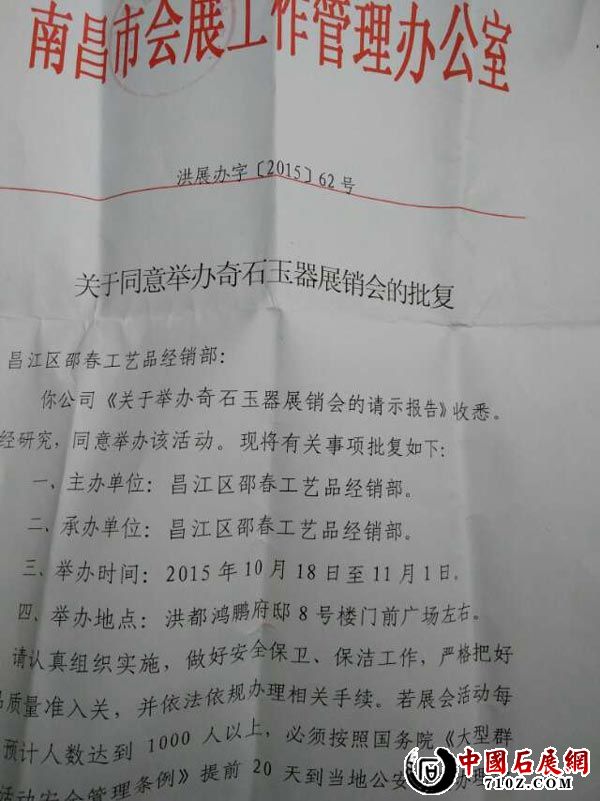 南昌市会展工作管理办公室
洪展办字〔2015〕62号
关于同意举办奇石玉器展销会的批复
昌江区邵春工艺品经销部：
你公司《关于举办奇石玉器展销会的请示报告》收悉。
经研究，同意举办该活动。现将有关事项批复如下：
一、主办单位：昌江区邵春工艺品经销部。
二、承办单位：昌江区邵春工艺品经销部。
三、举办时间：2015年10月18日至11月1日。
四、举办地点：洪都鸿鹏府邸8号楼门前广场左右。
请认真组织实施，做好安全保卫、保洁工作，严格把好
品质量准入关，并依法依规办理相关手续。若展会活动每
预计人数达到1000人以上，必须按照国务院《大型群
活动安全管理条例》提前20天到当地公安
中國石展網
7102.COM